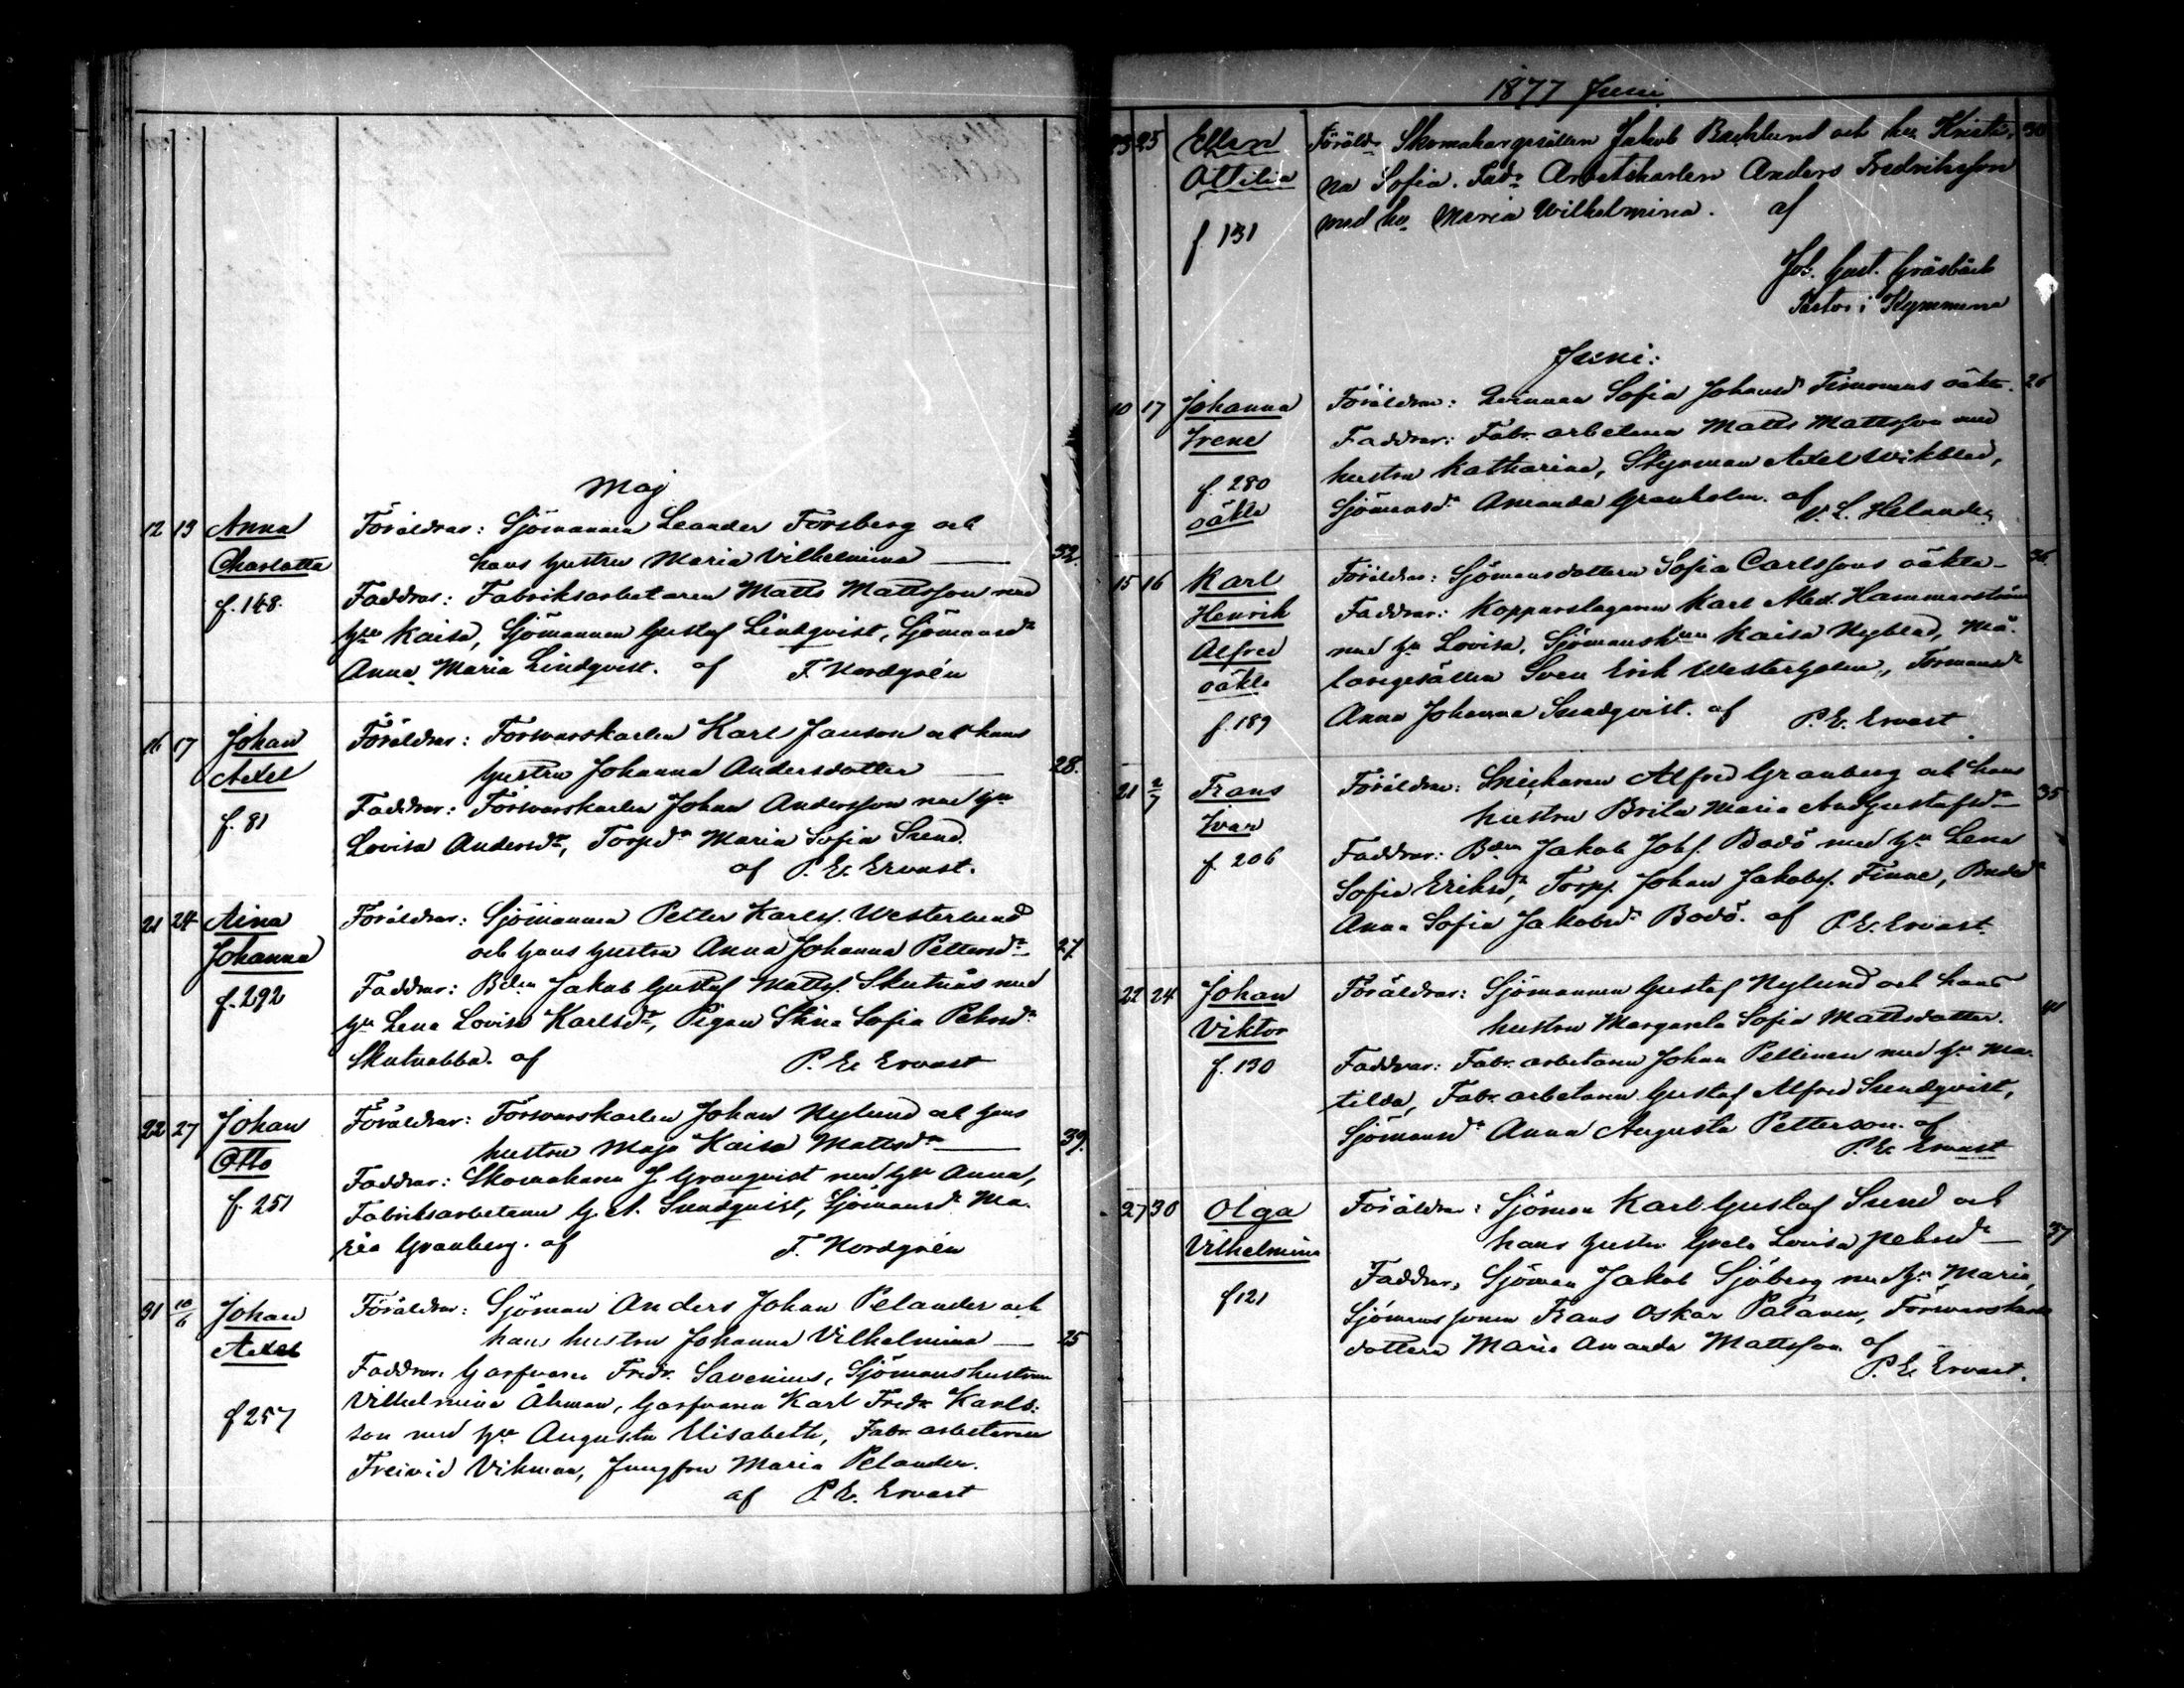 Maj
12 13 Anna Föräldrar: Sjömannen Leander Forsberg och
Charlotta hans hustru Maria Vilhelmina — 32.
f. 148. Faddrar: Fabriksarbetaren Matts Mattsson med
hu Kaisa, Sjömannen Gustaf Lindqvist, Sjömansdr
Anna Maria Lindqvist. af F. Nordgrén
16 17 Johan Föräldrar: Forswarskarlen Karl Janson och hans
Axel hustru Johanna Andersdotter — 28.
f. 81 Faddrar: Förswarskarlen Johan Andersson med hu
Lovisa Andersdr, Torpdr Maria Sofia Sund.
af P. E. Ervast.
21 24 Aina Föräldrar: Sjömannen Petter Karlss. Westerlund
Johanna och hans hustru Anna Johanna Pettersdr 27.
f. 292 Faddrar: Bden Jakob Gustaf Mattss. Skutnäs med
hu Lena Lovisa Karlsdr, Pigan Stina Sofia Pehrsdr
Skutnabba. af P. E. Ervast
22 27 Johan Föräldrar: Förswarskarlen Johan Nylund och hans
Otto hustru Maja Kaisa Mattsdr — 39.
f. 251 Faddrar: Skomakaren J. Granqvist med hu Anna,
Fabriksarbetaren G. A. Sundqvist, Sjömansdr Ma-
ria Granberg. af F. Nordgrén
31 10/6 Johan Föräldrar: Sjöman Anders Johan Pelander och
Axel hans hustru Johanna Vilhelmina — 25
Faddrar: Garfvaren Fredr. Savenius, Sjömanshustrun
f 257 Vilhelmina Åhman, Garfvaren Karl Fredr. Karls-
son med hu Augusta Elisabeth, Fabr. arbetaren
Vikman, Jungfru Maria Pelander.
af P. E. Ervast
1877 Juni
23 25 Ellen Föräldr. Skomakargesällen Jakob Backlund och hu Kristi- 30
Ottilia na Sofia. Fadr Arbetskarlen Anders Fredriksson
f. 131 med hu Maria Wilhelmina. af
Joh. Gust. Gräsbäck
Pastor i Kymmene
Juni:
10 17 Johanna Föräldrar: Sofia Johansdr oäkta. 26
Irene Faddrar: Fabr. arbetaren Matts Mattsson med
f. 280 hustru Katharina, Styrman Axel Wikblad,
oäkta Sjömansdr Amanda Granholm. af V. L. Helander
15 16 Karl Föräldrar: Sjömansdottern Sofia Carlssons oäkta — 36.
Henrik Faddrar: Kopparslagaren Karl Alex. Hammarström
Alfred med hu Lovisa, Sjömanshun Kaisa Nyblad, Må-
oäkta laregesällen Sven Erik Westerholm, Formansdr
f. 189 Anna Johanna Sundqvist. af P. E. Ervast
21 2/7 Frans Föräldrar: Snickaren Alfred Granberg och hans
Ivar hustru Brita Maria AndGustafsdr 35
f. 206 Faddrar: Bden Jakob Johs. Bodö med hu Lena
Sofia Eriksdr, Torp. Johan Jakobss. Finne, Bndedr
Anna Sofia Jakobsdr Bodö. af P. E. Ervast.
22 24 Johan Föräldrar: Sjömannen Gustaf Nylund och hans
Viktor hustru Margareta Sofia Mattsdotter. 41
f. 130 Faddrar: Fabr. arbetaren Johan Pellinen med hu Ma-
tilda, Fabr. arbetaren Gustaf Alfred Sundqvist,
Sjömansdr Anna Augusta Petterson. af
P. E. Ervast
27 30 Olga Föräldrar: Sjöman Karl Gustaf Sund och
Vilhelmina hans hustru Greta Lovisa Pehrsdr — 37
Faddrar: Sjöman Jakob Sjöberg med hu Maria,
f 121 Sjömanssonen Frans Oskar Patanen, Förswarskarls
dottern Maria Amanda Mattsson af
P. E. Ervast.